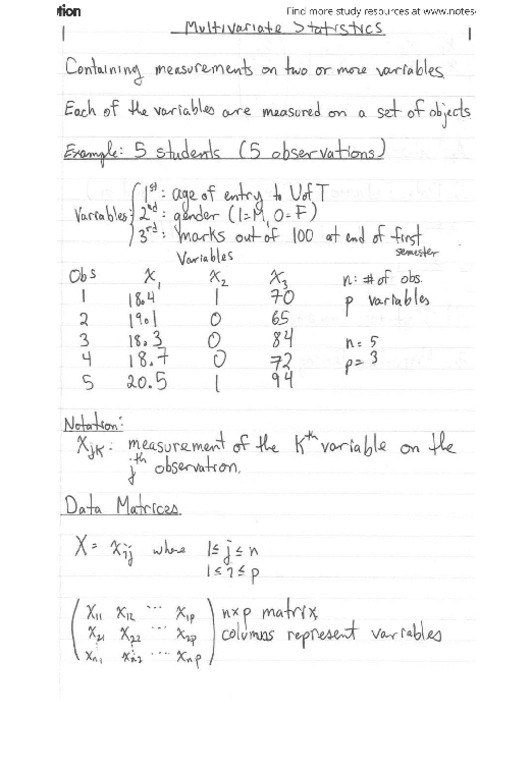 tion
Find more study resources at www.notes
Multivariate Statistics
Containing measurements on two or more variables
Each of the variables are measured on a set of objects
Example: 5 students (5 observations)
Variables { 1st: age of entry to UofT
2nd: gender (1=M, 0=F)
3rd: marks out of 100 at end of first semester
Variables
Obs X1 X2 X3 n: # of obs.
1 18.4 1 70 p variables
2 19.1 0 65
3 18.3 0 84 n=5
4 18.7 0 72 p=3
5 20.5 1 94
Notation:
Xjk: measurement of the Kth variable on the
jth observation.
Data Matrices
X = xij where 1≤j≤n
1≤i≤p
( X11 X12 ... X1p ) nxp matrix
X21 X22 ... X2p columns represent variables
Xn1 Xn2 ... Xnp